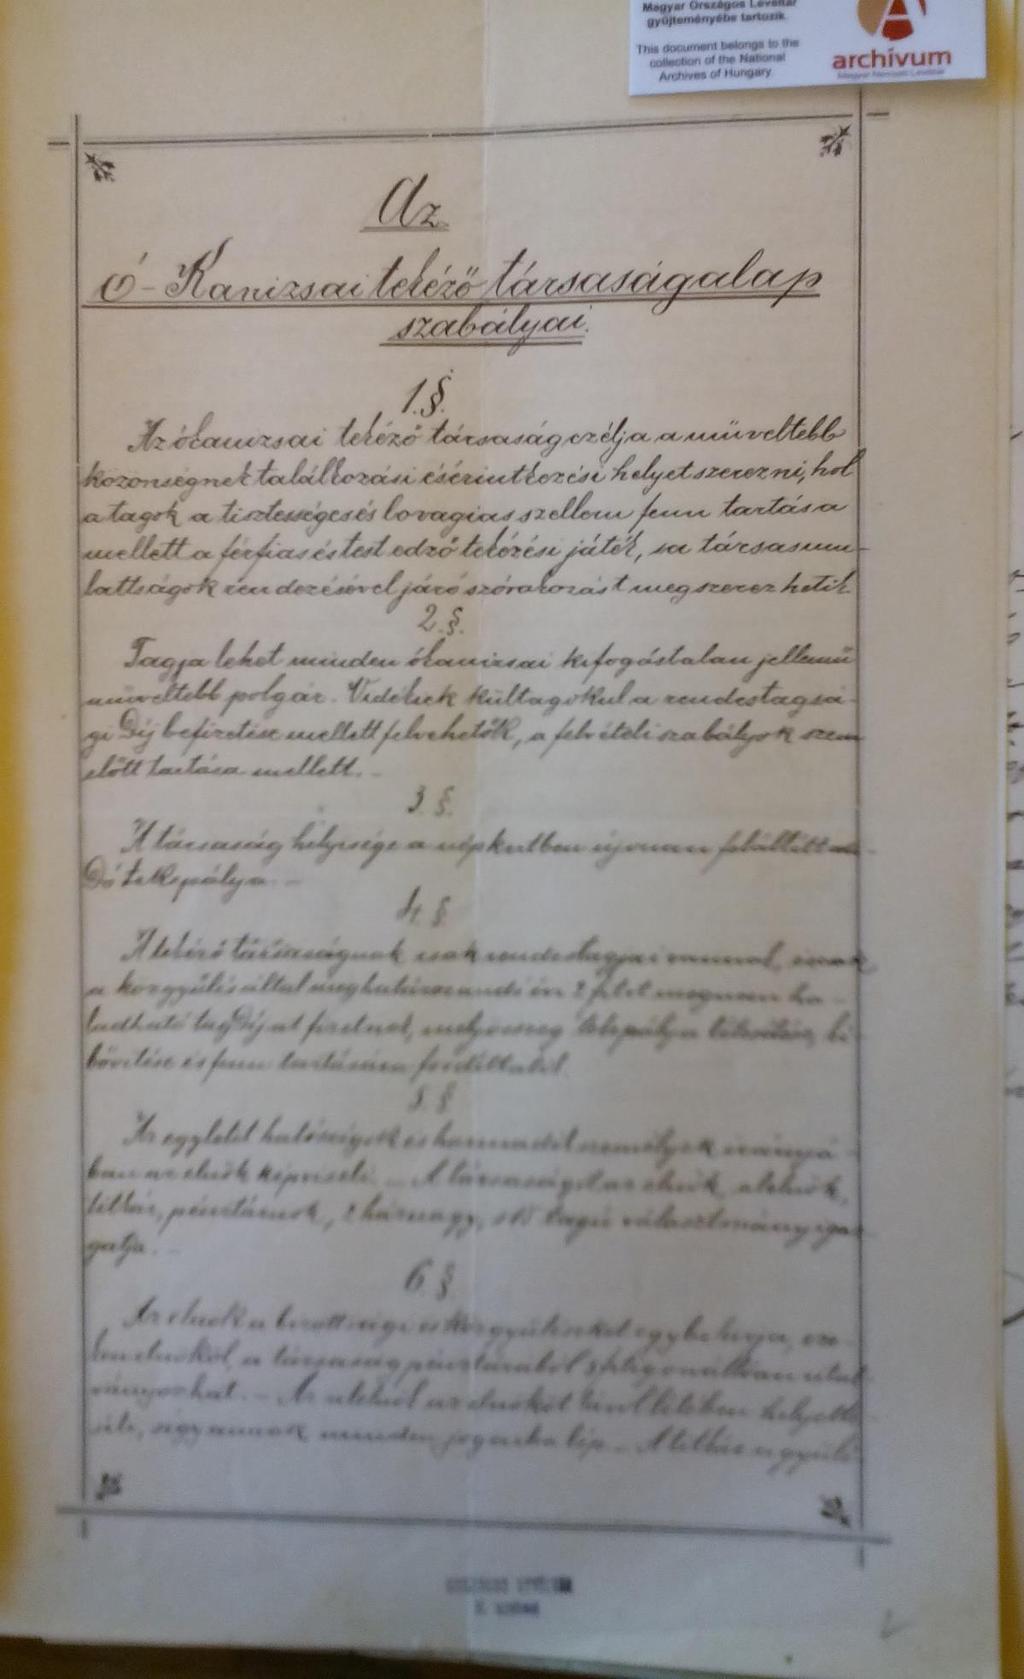 Magyar Országos Levéltár
gyűjteményébe tartozik.
This document belongs to the
collection of the National
Archives of Hungary
archívum
Magyar Nemzeti Levéltár
Az
Ó-Kanizsai tekéző társaság alap
szabályai.
1.§.
Az ókanizsai tekéző társaság czélja a műveltebb
közönségnek találkozási és érintkezési helyet szerezni, hol
a tagok a tisztességes és lovagias szellem fenn tartása
mellett a férfias és test edző tekézési játék, s a társasmu-
lattságok rendezésével járó szórakozást megszerezhetik.
2.§.
Tagja lehet minden ókanizsai kifogástalan jellemű
műveltebb polgár. Vidékiek kültagokul a rendes tagsá-
gi Díj befizetése mellett felvehetők, a felvételi szabályok szem
előtt tartása mellett.-
3.§.
A társaság helyisége a népkertben újonan felállíttan-
Dó tekepálya.-
4.§.
A tekéző társaságnak csak rendes tagjai vannak,
a közgyűlés által meghatározandó évi 2 frtot meg nem ha-
ladható tagDíjat fizetnek, mely összeg tekepálya létesítése, ki-
bővítése és fenn tartására fordíttatik.
5.§
Az egyletet hatóságok és harmadik személyek irányá-
ban az elnök képviseli. - A társaságot az elnök, alelnök,
titkár, pénztárnok, 2 háznagy, s 15 tagú választmány igaz-
gatja.-
6.§.
Az elnök a bizottsági és közgyűléseket egybehívja,
a társaság pénztárából 5 frtig önállóan utal-
ványozhat. - Az alelnök az elnököt távollétében helyette-
síti, s így annak minden jogaiba lép. - A titkár a gyűlé-